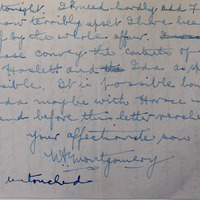 tonight. I need hardly add
how terribly upset I have been
by the whole affair.
convey the contents
Haslett and Ida as
possible. It is possible
may be with Horace
and before this letter reaches
Your affectionate son
W Montgomery
untouched